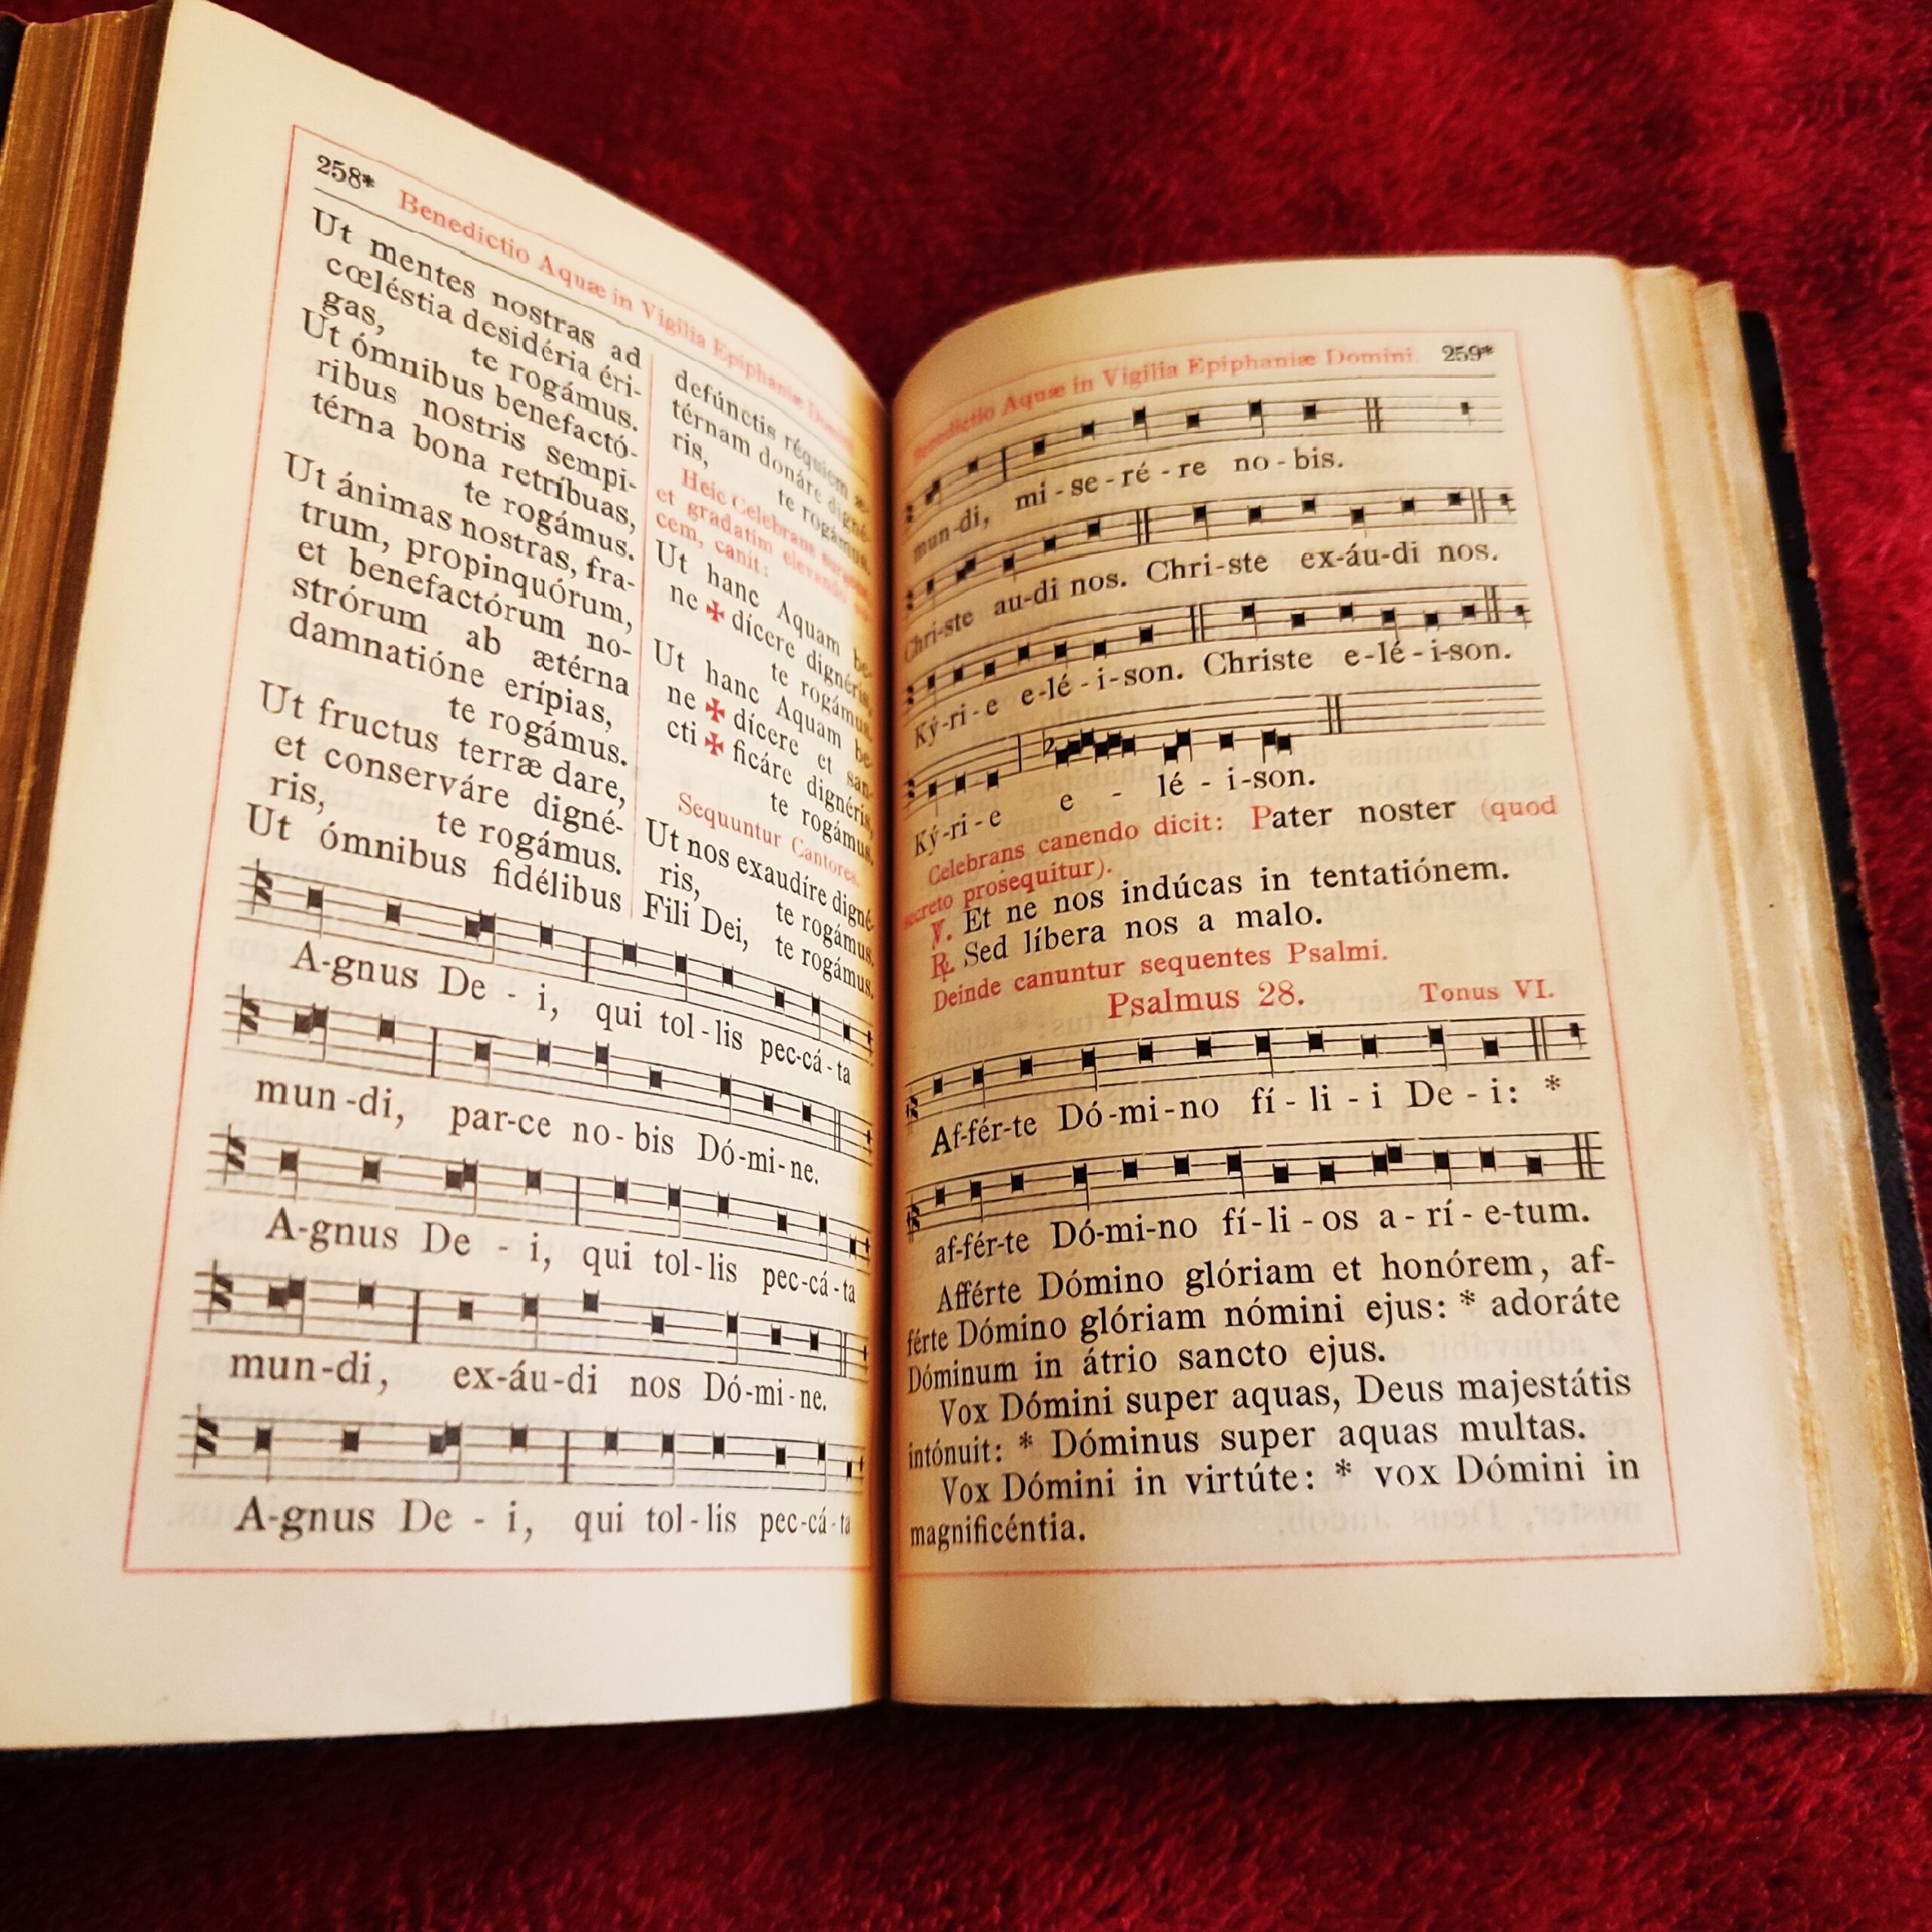 258* Benedictio Aquæ in Vigilia Epiphaniæ
Ut mentes nostras ad
cœléstia desidéria éri-
gas, te rogámus.
Ut ómnibus benefactó-
ribus nostris sempi-
térna bona retríbuas,
te rogámus.
Ut ánimas nostras, fra-
trum, propinquórum,
et benefactórum no-
strórum ab ætérna
damnatióne erípias,
te rogámus.
Ut fructus terræ dare,
et conserváre digné-
ris, te rogámus.
Ut ómnibus fidélibus
defúnctis réquiem æ-
térnam donáre digné-
ris, te rogámus.
Heic Celebrans
et gradatim elevando
cem, canit:
Ut hanc Aquam be-
ne ✠ dícere dignéris,
te rogámus.
Ut hanc Aquam be-
ne ✠ dícere et san-
cti ✠ ficáre dignéris,
te rogámus.
Sequuntur Cantores.
Ut nos exaudíre digné-
ris, te rogámus.
Fili Dei, te rogámus.
A-gnus De - i, qui tol-lis pec-cá-ta
mun-di, par-ce no-bis Dó-mi-ne.
A-gnus De - i, qui tol-lis pec-cá-ta
mun-di, ex-áu-di nos Dó-mi-ne.
A-gnus De - i, qui tol-lis pec-cá-ta
Benedictio Aquæ in Vigilia Epiphaniæ Domini. 259*
mun-di, mi-se-ré-re no-bis.
Chri-ste au-di nos. Chri-ste ex-áu-di nos.
Ký-ri-e e-lé-i-son. Christe e-lé-i-son.
Ký-ri-e e - lé - i-son.
Celebrans canendo dicit: Pater noster (quod
secreto prosequitur).
℣. Et ne nos indúcas in tentatiónem.
℟. Sed líbera nos a malo.
Deinde canuntur sequentes Psalmi.
Psalmus 28. Tonus VI.
Af-fér-te Dó-mi-no fí-li-i De-i: *
af-fér-te Dó-mi-no fí-li-os a-rí-e-tum.
Afférte Dómino glóriam et honórem, af-
férte Dómino glóriam nómini ejus: * adoráte
Dóminum in átrio sancto ejus.
Vox Dómini super aquas, Deus majestátis
intónuit: * Dóminus super aquas multas.
Vox Dómini in virtúte: * vox Dómini in
magnificéntia.